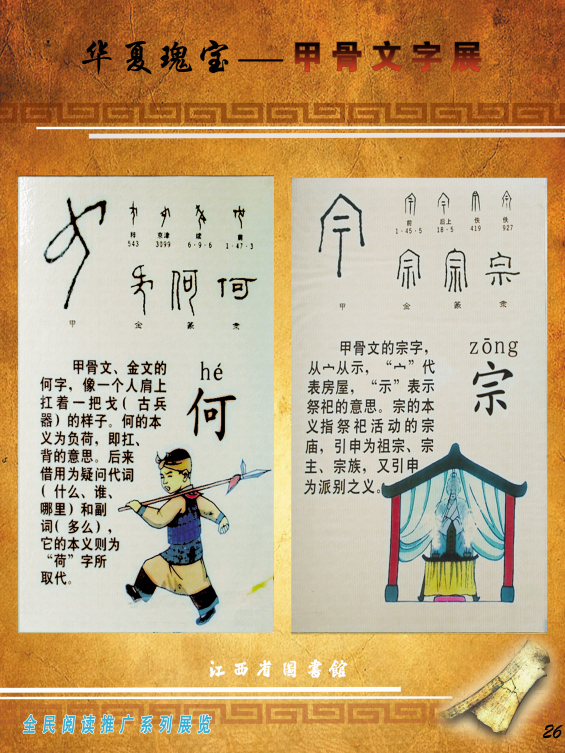 华夏瑰宝——甲骨文字展
粹 京津 续 甫
543 3099 6·9·6 1·47·3
甲 金 篆 隶
hé
何
甲骨文、金文的
何字,像一个人肩上
扛着一把戈(古兵
器)的样子。何的本
义为负荷,即扛、
背的意思。后来
借用为疑问代词
(什么、谁、
哪里)和副
词(多么),
它的本义则为
“荷”字所
取代。
前 后上 佚 佚
1·45·5 18·5 419 927
甲 金 篆 隶
zōng
宗
甲骨文的宗字,
从宀从示,“宀”代
表房屋,“示”表示
祭祀的意思。宗的本
义指祭祀活动的宗
庙,引申为祖宗、宗
主、宗族,又引申
为派别之义。
江西省图書館
全民阅读推广系列展览
26